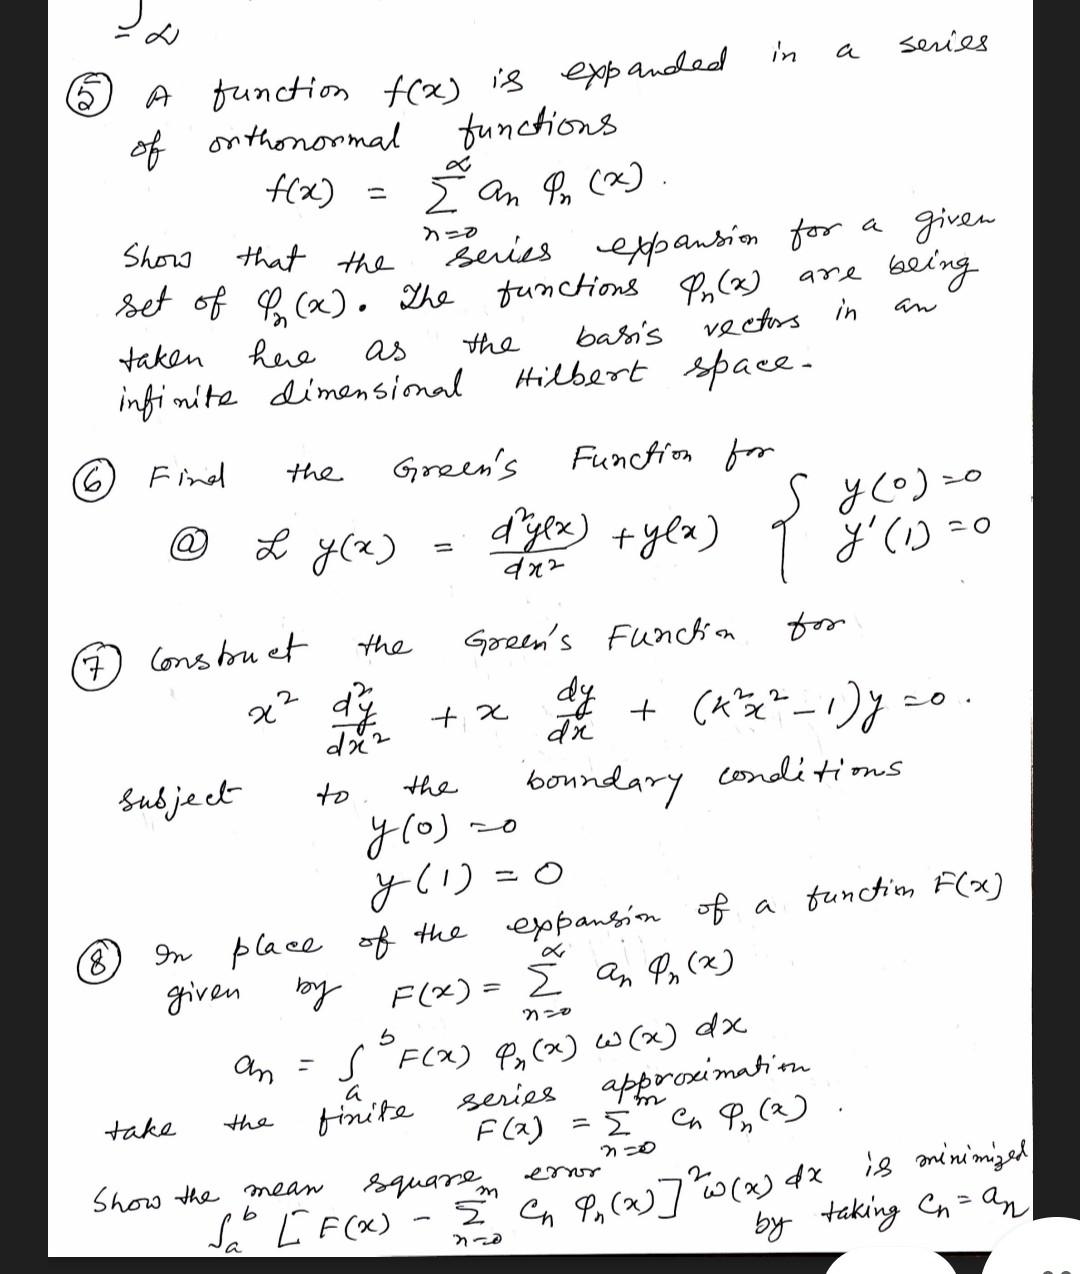 = ∞
⑤ A function f(x) is expanded in a series
of orthonormal functions
f(x) = ∑_{n=0}^{∞} a_n φ_n (x).
Show that the series expansion for a given
set of φ_n (x). The functions φ_n(x) are being
taken here as the basis vectors in an
infinite dimensional Hilbert space.
⑥ Find the Green's Function for
ⓐ ℒ y(x) = d²y(x)/dx² + y(x) { y(0) = 0
y'(1) = 0
⑦ Construct the Green's Function for
x² d²y/dx² + x dy/dx + (k²x² - 1)y = 0.
subject to the boundary conditions
y(0) = 0
y(1) = 0
⑧ In place of the expansion of a function F(x)
given by F(x) = ∑_{n=0}^{∞} a_n φ_n (x)
a_n = ∫_a^b F(x) φ_n(x) ω(x) dx
take the finite series approximation
F(x) = ∑_{n=0}^{m} c_n φ_n(x).
Show the mean square error
∫_a^b [F(x) - ∑_{n=0}^{m} c_n φ_n(x)]² ω(x) dx is minimized
by taking c_n = a_n